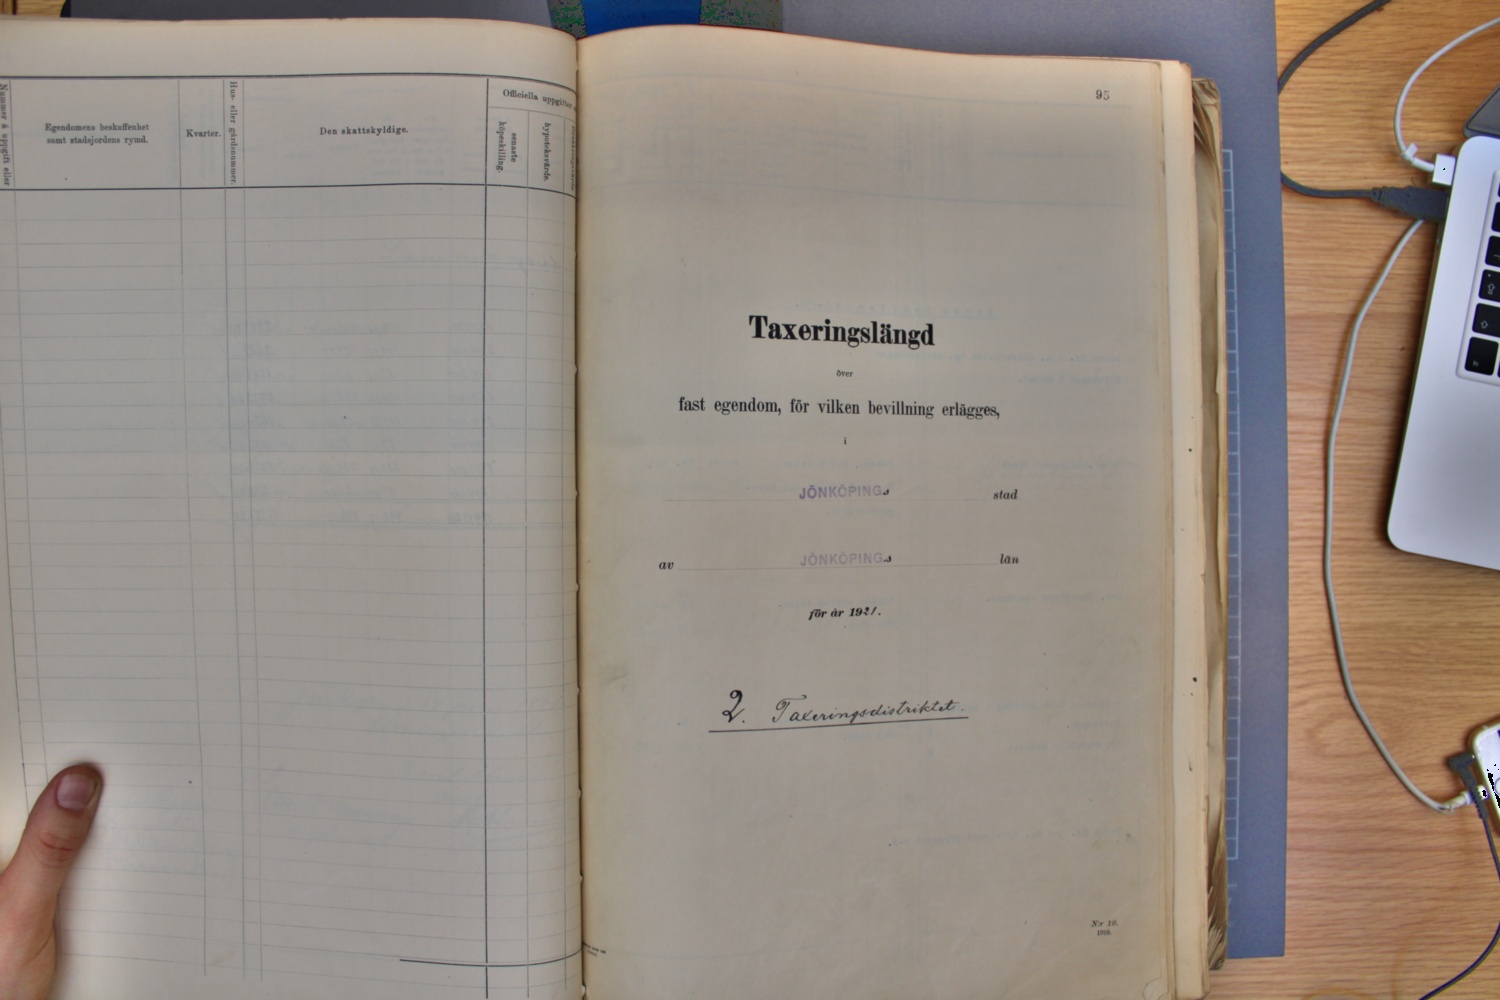 Nummer å uppgift eller
Egendomens beskaffenhet
samt stadsjordens rymd.
Kvarter.
Hus- eller gårdsnummer.
Den skattskyldige.
Officiella uppgifter
senaste
köpeskilling.
hypoteksvärde.
95
Taxeringslängd
över
fast egendom, för vilken bevillning erlägges,
i
JÖNKÖPINGs stad
av JÖNKÖPINGs län
för år 1921.
2. Taxeringsdistriktet.
N:r 10.
1919.